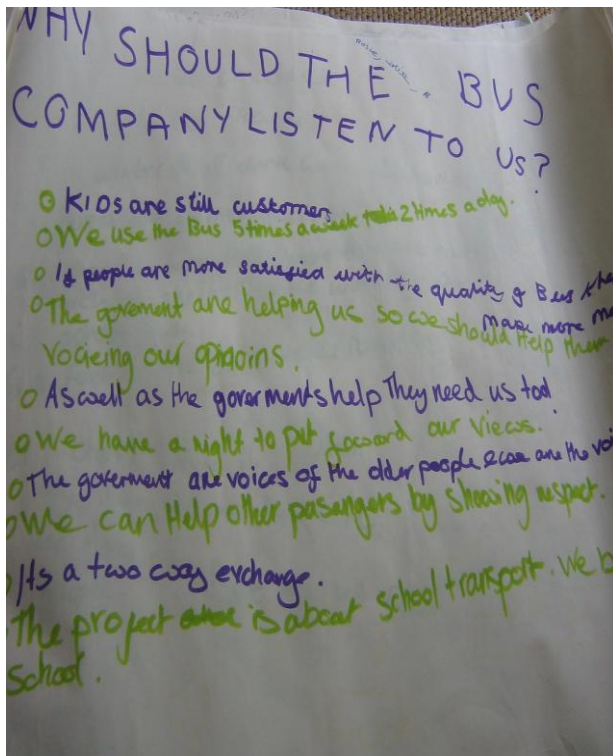 WHY SHOULD THE BUS
COMPANY LISTEN TO US?
KIDS are still customers
We use the Bus 5 times a week 2 times a day.
If people are more satisfied with the quality of Bus the
make more
The goverment are helping us so we should help them
Vocieing our opinions.
Aswell as the goverments help They need us too
We have a right to put forward our views.
The goverment are voices of the older people are the
We can Help other pasangers by showing respect.
Its a two way exchange.
The project is about school transport. We
School.